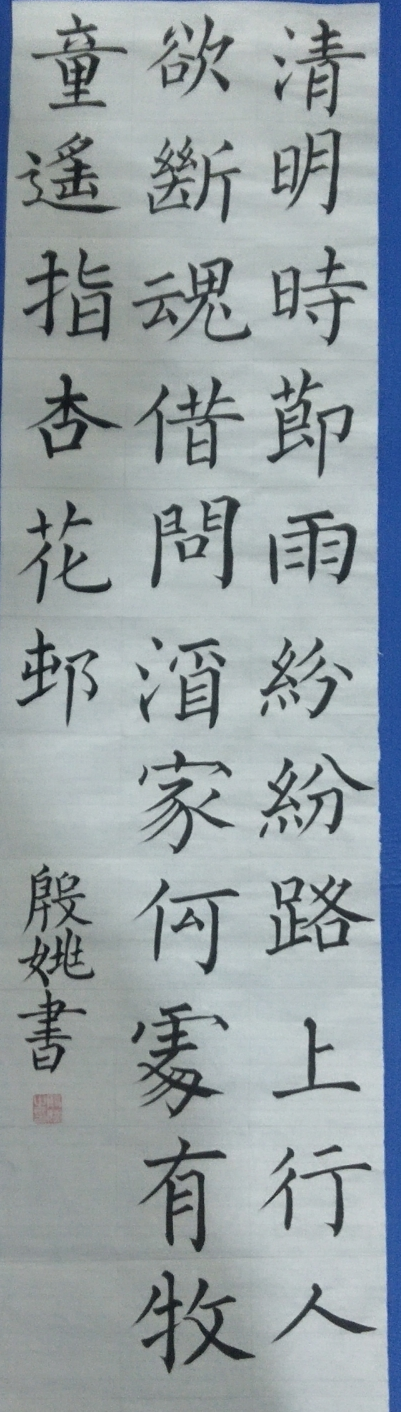 清明時節雨紛紛路上行人
欲斷魂借問酒家何處有牧
童遙指杏花邨
殷姚書